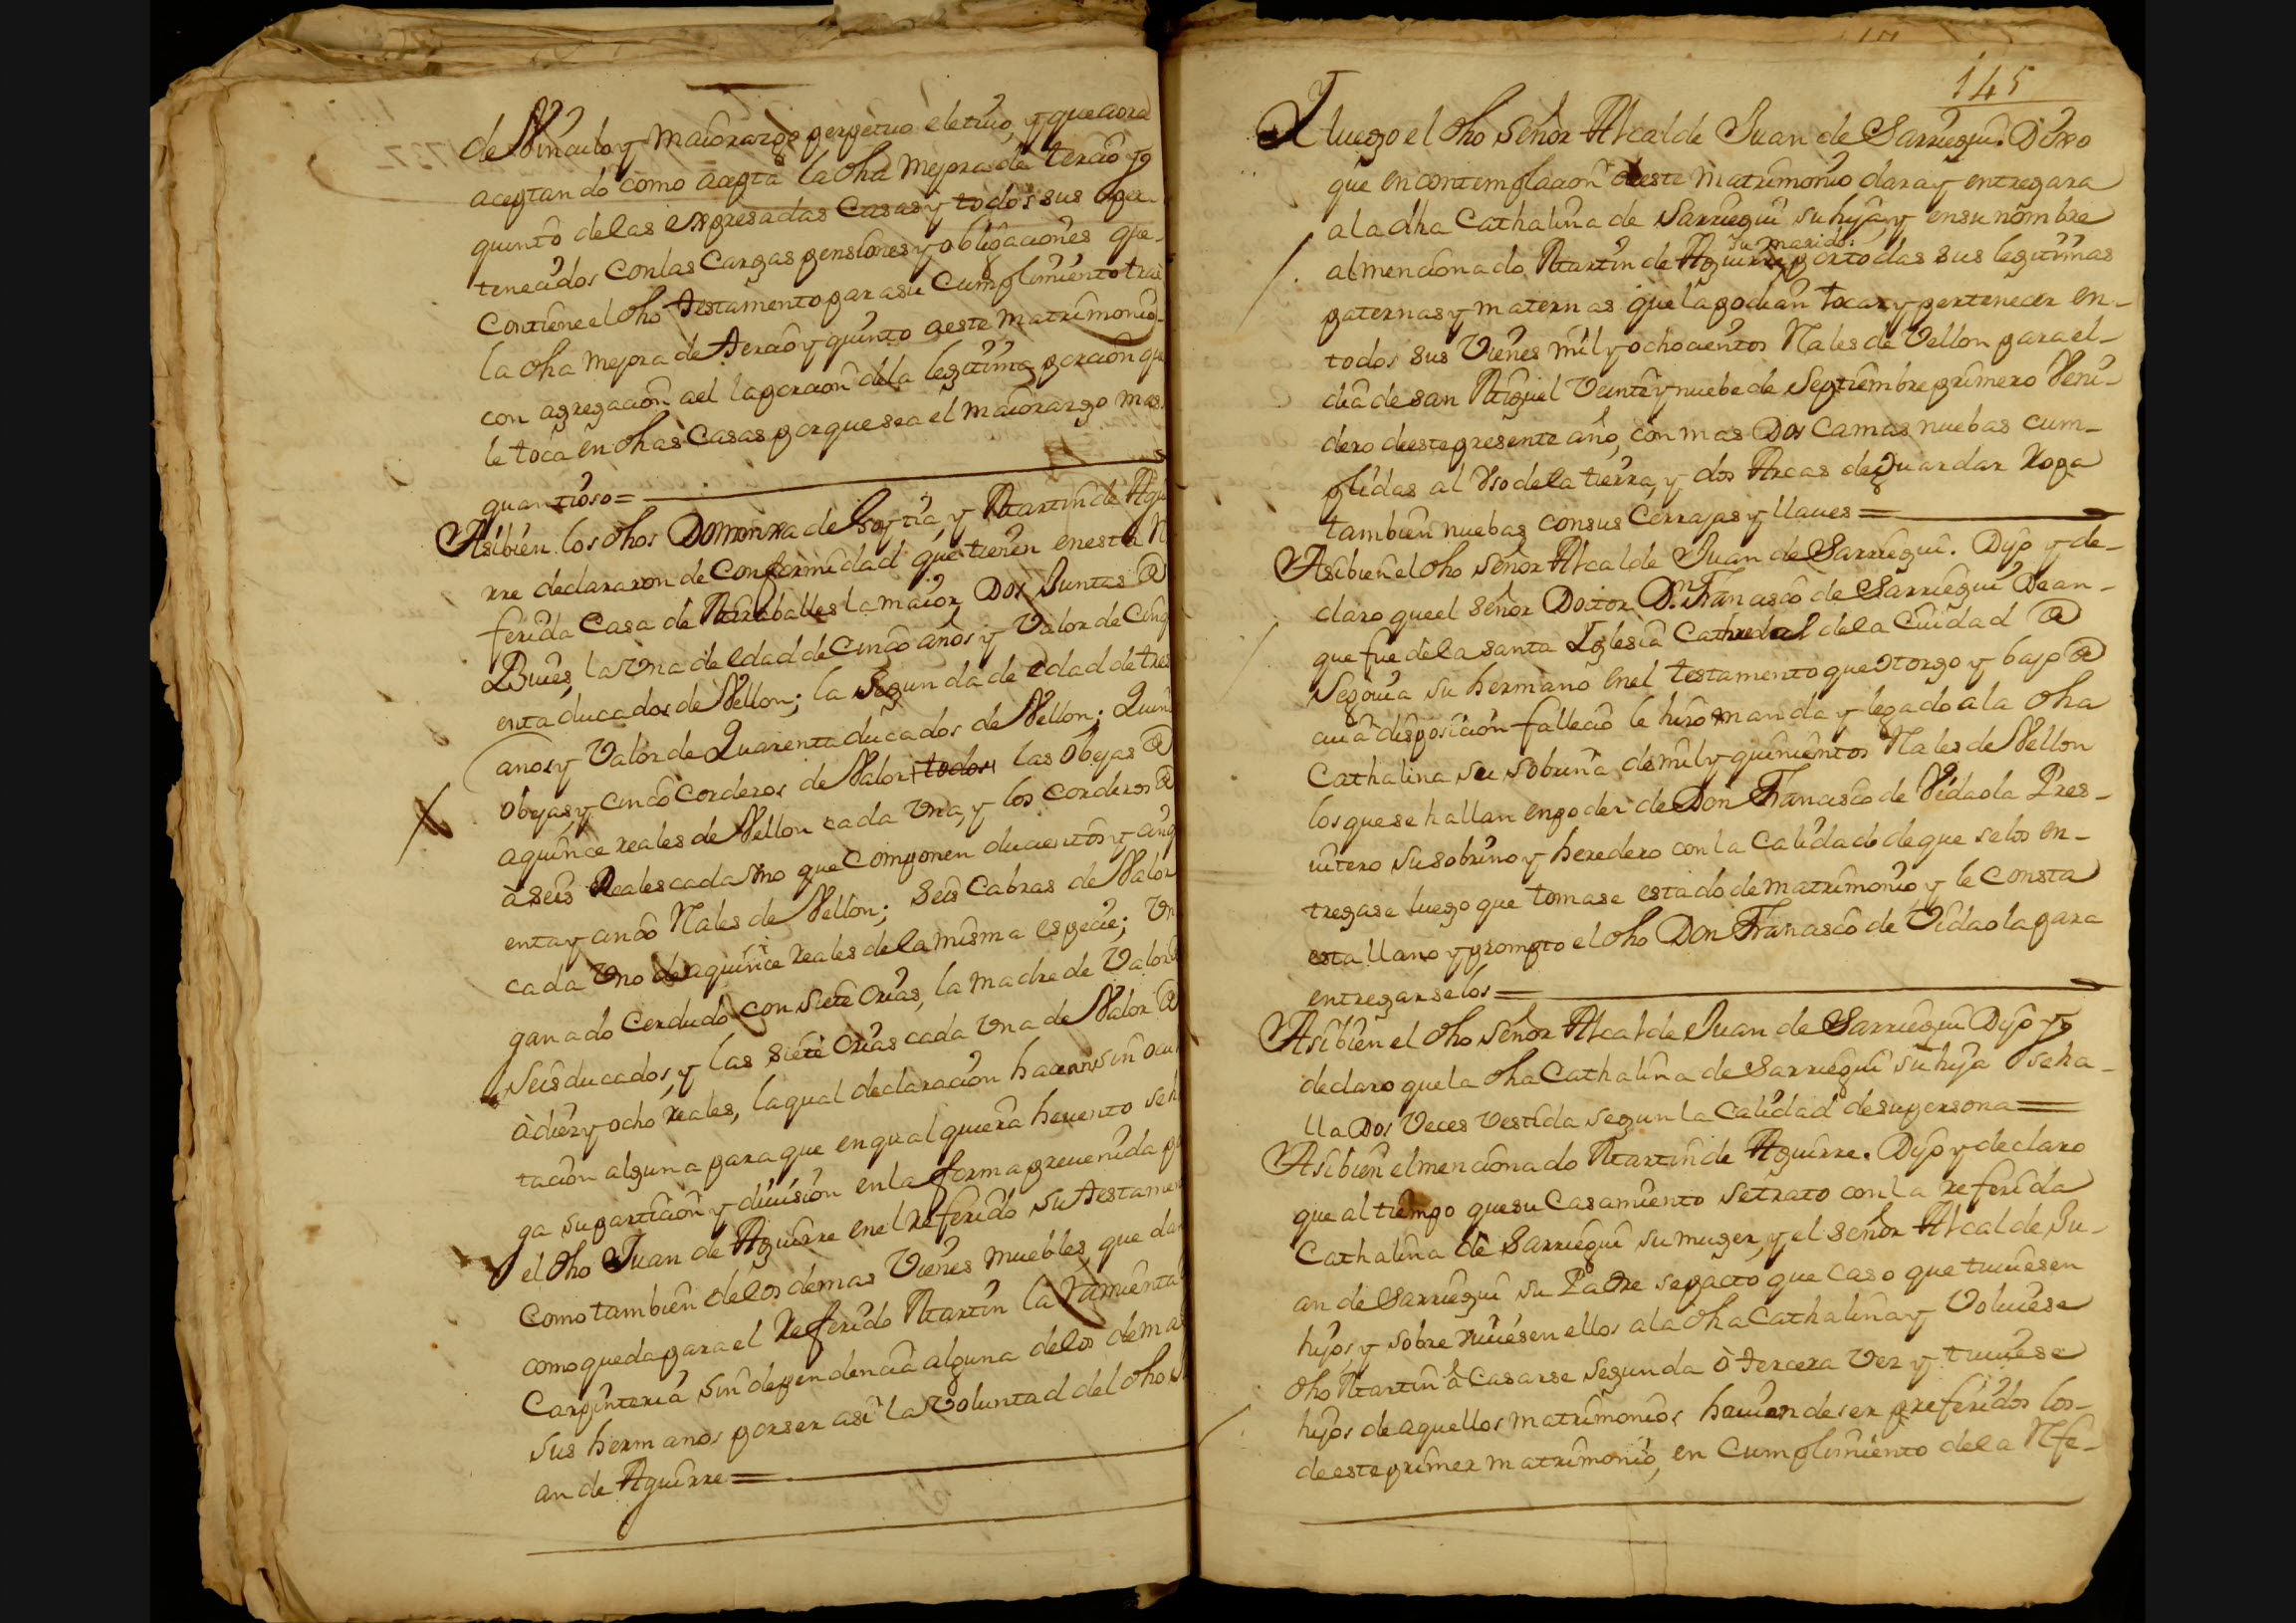 de Vinculo y maiorazgo perpetuo eletiuo, y que aora
aceptando como acepta la dha mejora de tercio y
quinto de las expresadas Casas y todos sus per-
tenecidos con las Cargas pensiones y obligaciones que
Contiene el dho testamento para su Cumplimiento trae
la dha mejora de tercio y quinto a este matrimonio
con agregacion ael la porcion de la legitima porcion que
le toca en dhas Casas porque sea el maiorazgo mas
quantioso =
Asibien los dhos Domonxa de y Martin de Agui
rre declararon de Conformidad que tienen en esta
ferida Casa de la maior Dos Juntas @
Bueies, la Vna de edad de Cinco años y Valor de Cinq
enta ducados de Vellon; la Segunda de edad de tres
anos y Valor de Quarenta ducados de Vellon; Quin
obejas y cinco Corderos de Valor todos las Obejas @
a quince reales de Vellon cada Vna, y los Corderos @
à seis Reales cada Vno que Componen ducientos y cinq
enta y cinco Rales de Vellon; Seis Cabras de Valor
cada Vno de a quince reales de la misma especie; Vn
ganado Cerdudo con Siete Crias, la madre de Valor @
Seis ducados, y las siete Crias cada Vna de Valor @
à diez y ocho reales, la qual declaracion hacen sin ocul
tacion alguna para que en qualquiera heuento se ha
ga su particion y diuision en la forma preuenida po
el dho Juan de Aguirre en el referido su testamen
Como tambien de los demas Vienes muebles, que dan
como queda para el Referido Martin la ramienta
Carpinteria sin dependencia alguna de los demas
sus hermanos por ser asi la Voluntad del dho Ju
an de Aguirre =
145
Y luego el dho Señor Alcalde Juan de Sarriegui. Dixo
que en contemplacion de este matrimonio dara y entregara
a la dha Cathalina de Sarriegui su hija, y en su nombre
su marido.
al mencionado Martin de Aguirre por todas sus legitimas
paternas y maternas que la podian tocar y pertenecer en
todos sus Vienes mil y ochocientos Rales de Vellon para el
dia de san Miguel Veinte y nuebe de Septiembre primero Veni-
dero de este presente año, con mas Dos Camas nuebas cum-
plidas al Vso de la tierra, y dos Arcas de Guardar Ropa
tambien nuebas con sus Cerrajas y llaues =
Asibien el dho señor Alcalde Juan de Sarriegui. Dijo y de-
claro que el señor Doctor Dn. Francisco de Sarriegui Dean-
que fue de la santa Iglesia Cathredal de la Ciudad @
Segouia su hermano en el testamento que otorgo y bajo @
cuia disposicion fallecio le hizo manda y legado a la dha
Cathalina su sobrina de mil y quinientos Rales de Vellon
los que se hallan en poder de Don Francisco de Vidaola Pres-
uitero su sobrino y heredero con la Calidad de que se los en-
tregase luego que tomase estado de matrimonio y le Consta
esta llano y prompto el dho Don Francisco de Vidaola para
entregarselos =
Asibien el dho señor Alcalde Juan de Sarriegui Dijo y
declaro que la dha Cathalina de Sarriegui su hija se ha-
lla Dos Veces Vestida segun la Calidad de su persona =
Asibien el mencionado Martin de Aguirre. Dijo y declaro
que al tiempo que su Casamiento se trato con la referida
Cathalina de Sarriegui su muger, y el señor Alcalde Ju-
an de Sarriegui su Padre se pacto que caso que tuuiesen
hijos y sobre viuiesen ellos a la dha Cathalina y Voluiese
dho Martin à Casarse Segunda ò tercera Vez y tuuiese
hijos de aquellos matrimonios hauian de ser preferidos los
de este primer matrimonio, en Cumplimiento de la Rfe-